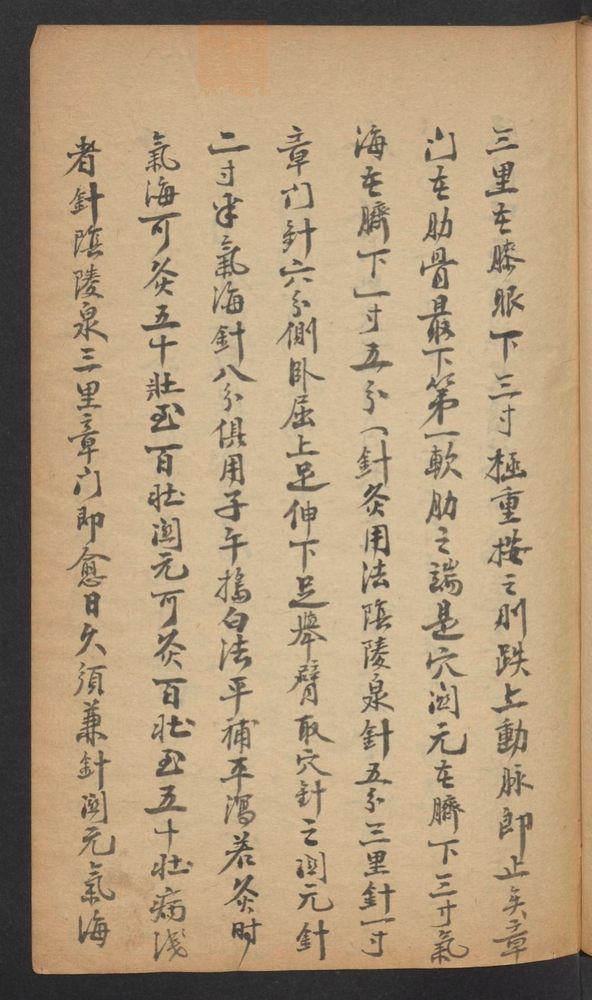 三里在膝眼下三寸極重按之則跌上動脉即止矣章
门在肋骨最下第一軟肋之端是穴関元在臍下三寸氣
海在臍下一寸五分(針灸用法陰陵泉針五分三里針一寸
章门針六分側卧屈上足伸下足舉臂取穴針之関元針
二寸半氣海針八分俱用子午搗臼法平補平瀉若灸时
氣海可灸五十壯至一百壯関元可灸百壯至五十壯病淺
者針陰陵泉三里章门即愈日久須兼針関元氣海